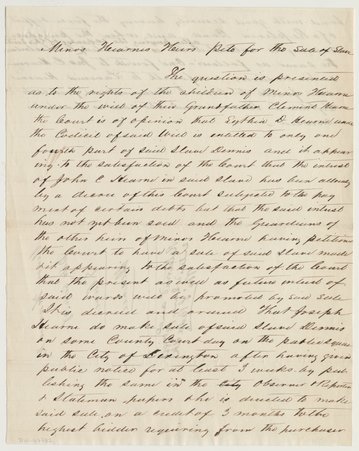 Minor Hearnes Heirs Peto for the Sale of Slave
The question is presented
as to the rights of the children of Minor Hearne
under the will of their Grandfather Clement Hearne
the Court is of opinion that D Hearne under
the Codicil of said Will is entitled to only one
fourth part of said Slave Dennis and it appear
ing to the satisfaction of the Court that the interest
of John C Hearne in said slave has been
by a decree of this Court subjected to the pay
ment of certain debts but that the said interest
has not yet been sold and the Guardians of
the other heirs of Minor Hearne having petitioned
the Court to have a sale of said Slave made
& it appearing to the satisfaction of the Court
that the present as well as future interest of
said wards will be promoted by said Sale
It is decreed and ordered that Joseph
Hearne do make sale of said Slave Dennis
on some County Court day on the public square
in the City of Lexington after having given
public notice for at least 3 weeks by pub
lishing the same in the Observer & Reporter
& Statesman papers who is directed to make
said sale on a credit of 3 months to the
highest bidder requiring from the purchaser